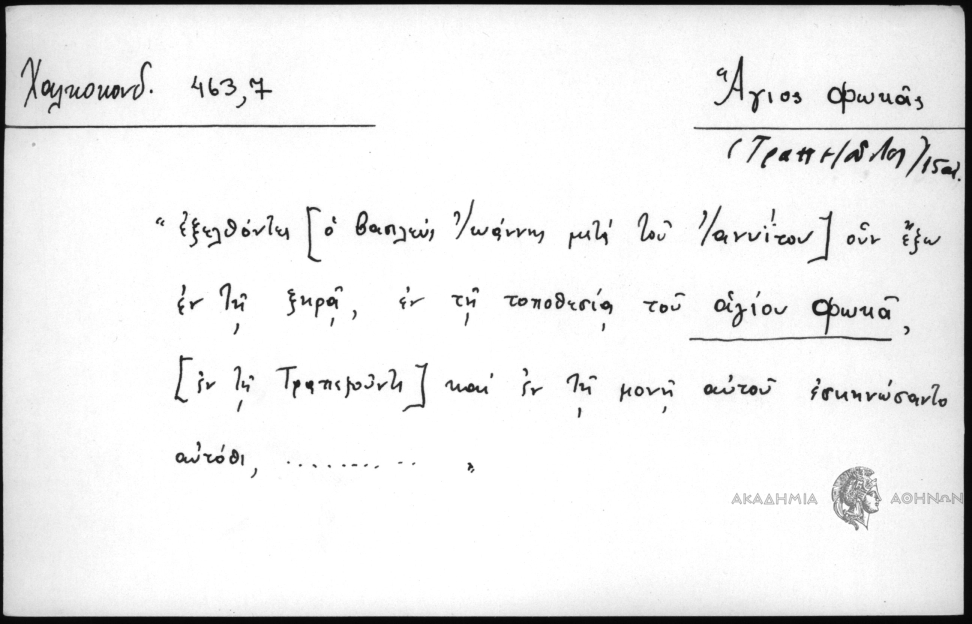 Χαλκοκονδ. 463,7
Ἅγιος Φωκᾶς
15 αἰ.
“ ἐξελθόντες [ὁ βασιλεύς Ἰωάννης μετά τοῦ] οὖν ἔξω
ἐν τῇ ξηρᾷ, ἐν τῇ τοποθεσίᾳ τοῦ ἁγίου Φωκᾶ,
[ἐν τῇ Τραπεζοῦντι] καί ἐν τῇ μονῇ αὐτοῦ ἐσκηνώσαντο
αὐτόθι, .......... ”
ΑΚΑΔΗΜΙΑ ΑΘΗΝΩΝ